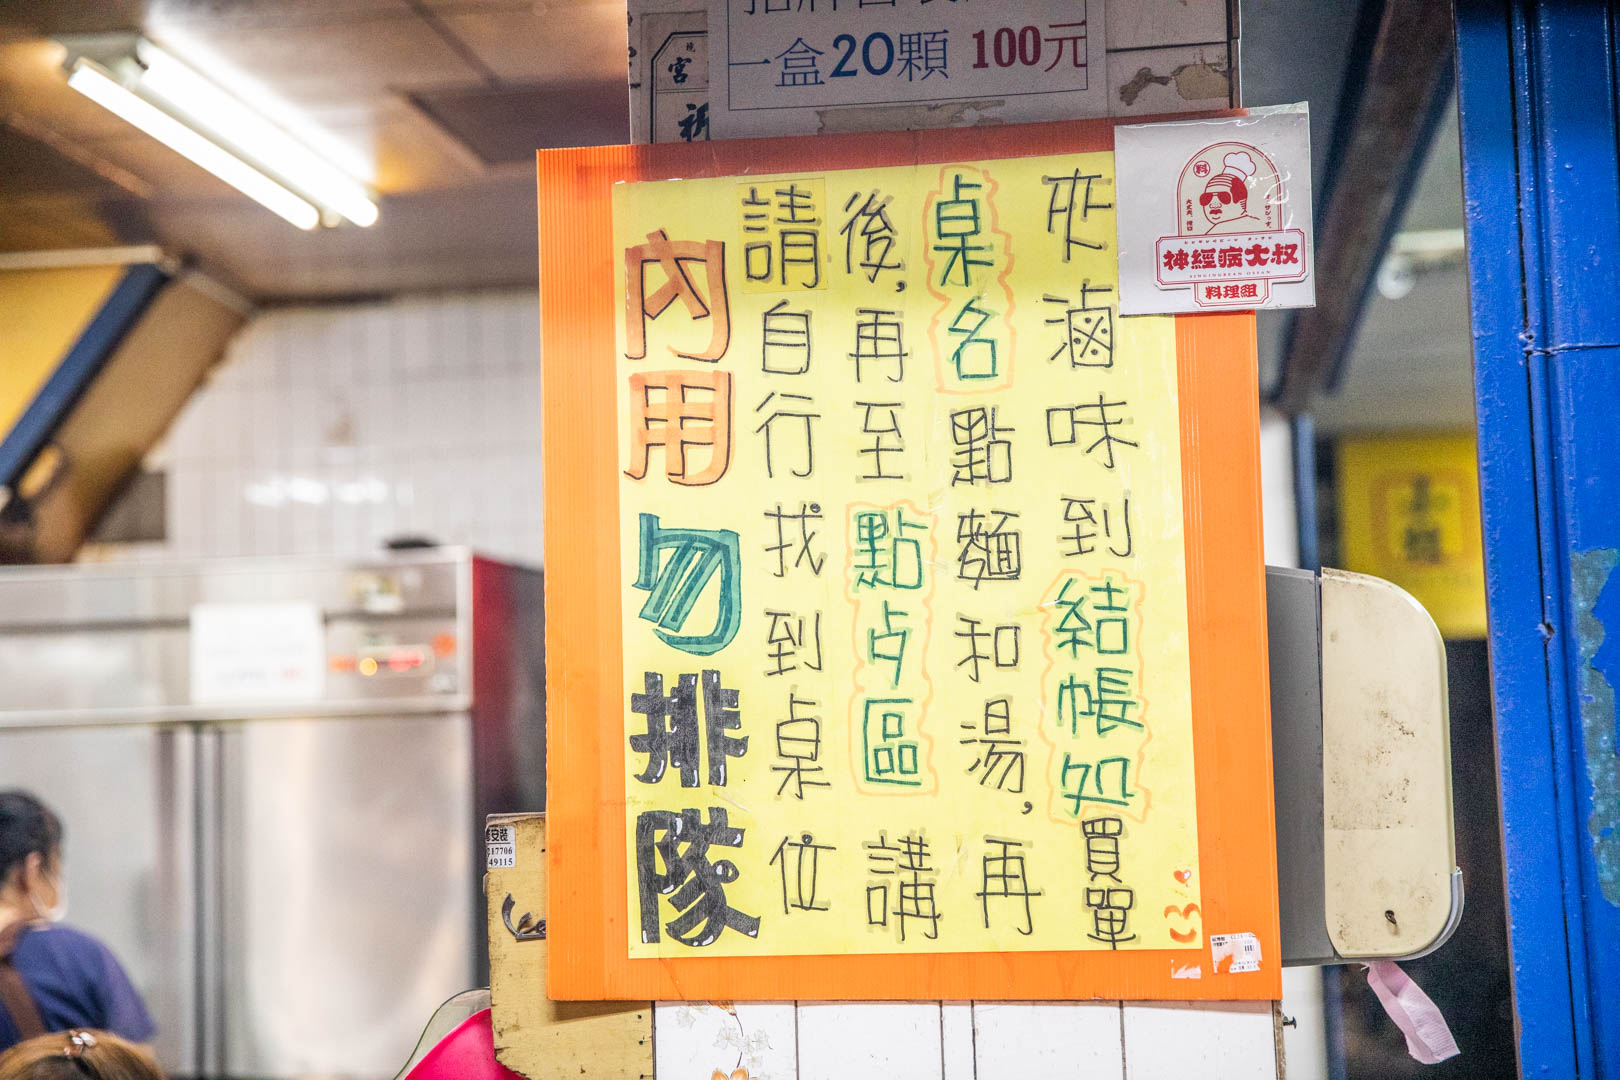 一盒20顆 100元
宮
內用勿排隊
請自行找到桌位
後,再至點歺區講
桌名點麵和湯,再
夾滷味到結帳処買單
料
神經病大叔
SINGINGBEAN OSSAN
料理組
安裝
17706
49115